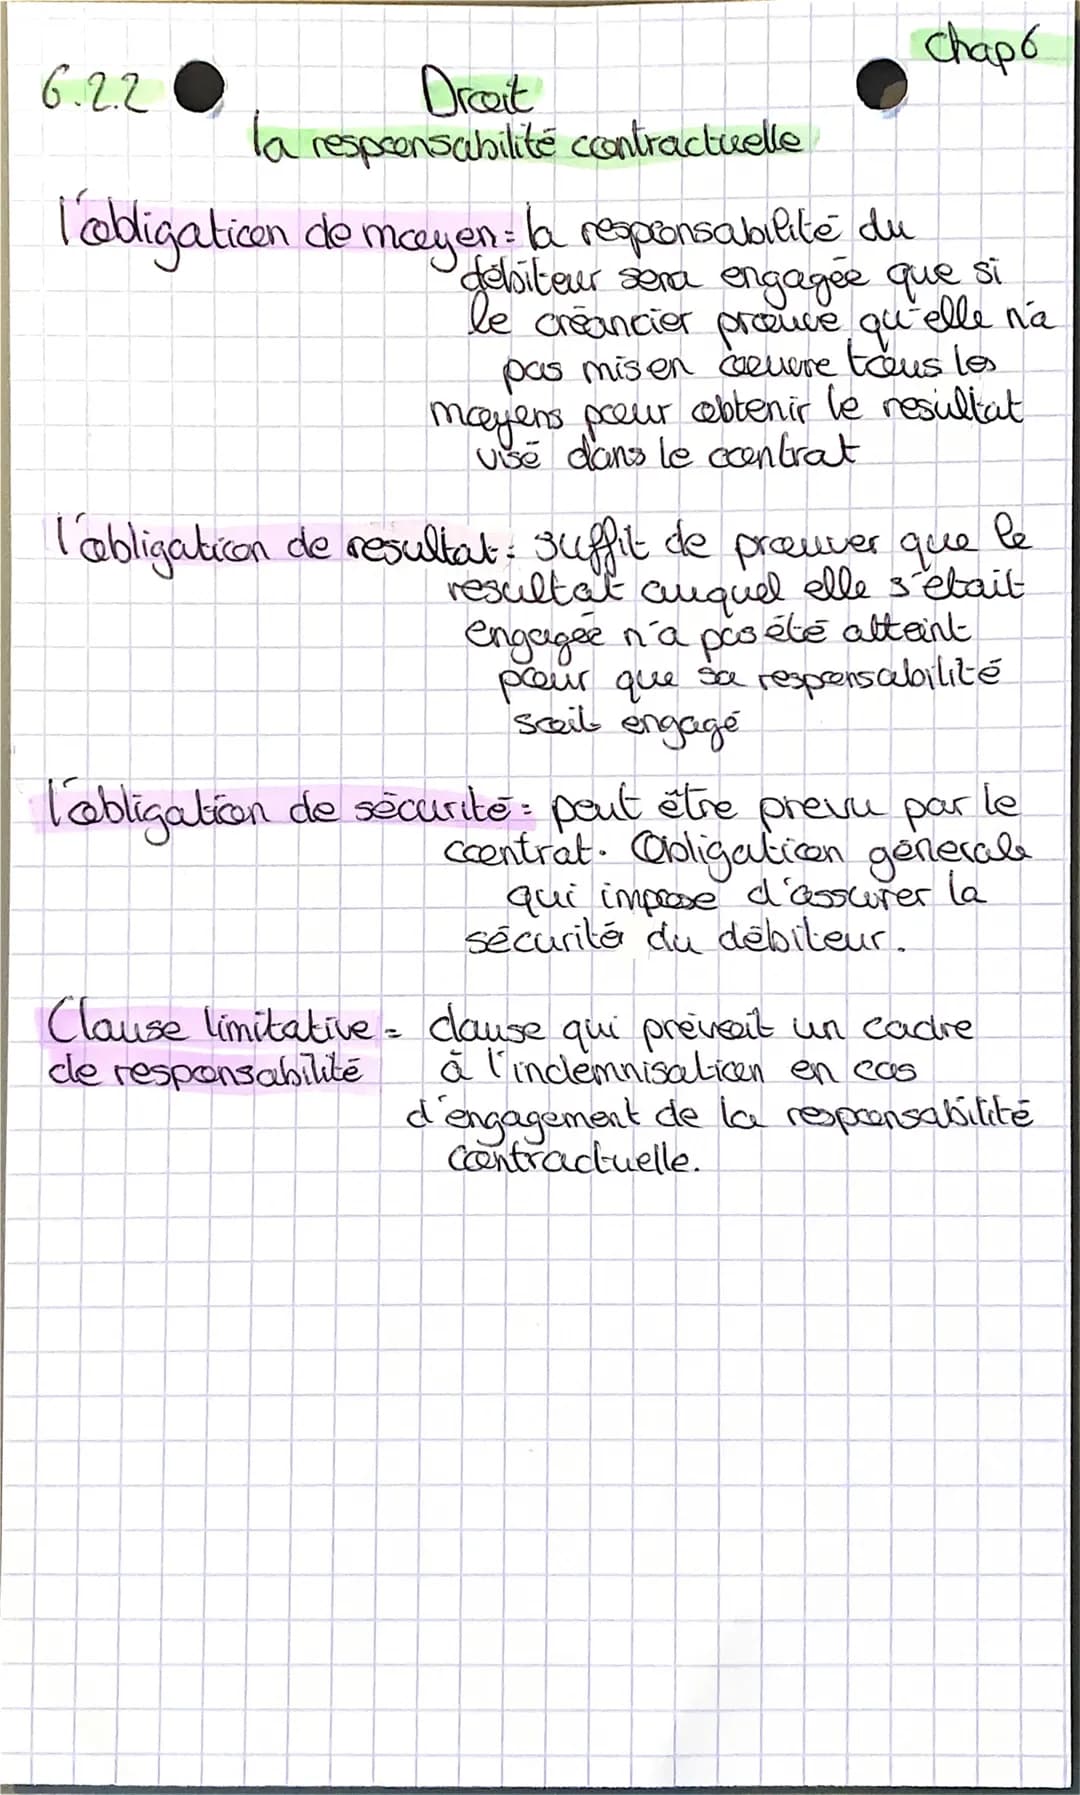 Chap 6
6.2.2
Droit
la responsabilité contractuelle
l'obligation de moyen = la responsabilité du
débiteur sera engagée que si
le créancier prouve qu'elle n'a
pas mis en oeuvre tous les
moyens pour obtenir le resultat
visé dans le contrat
l'obligation de resultat : suffit de prouver que le
resultat auquel elle s'était
engagée n'a pas été atteint
pour que sa responsabilité
soit engagé
l'obligation de sécurité = peut être prevu par le
contrat. Obligation générale
qui impose d'assurer la
sécurité du débiteur.
Clause limitative = clause qui prévoit un cadre
de responsabilité à l'indemnisation en cas
d'engagement de la responsabilité
contractuelle.